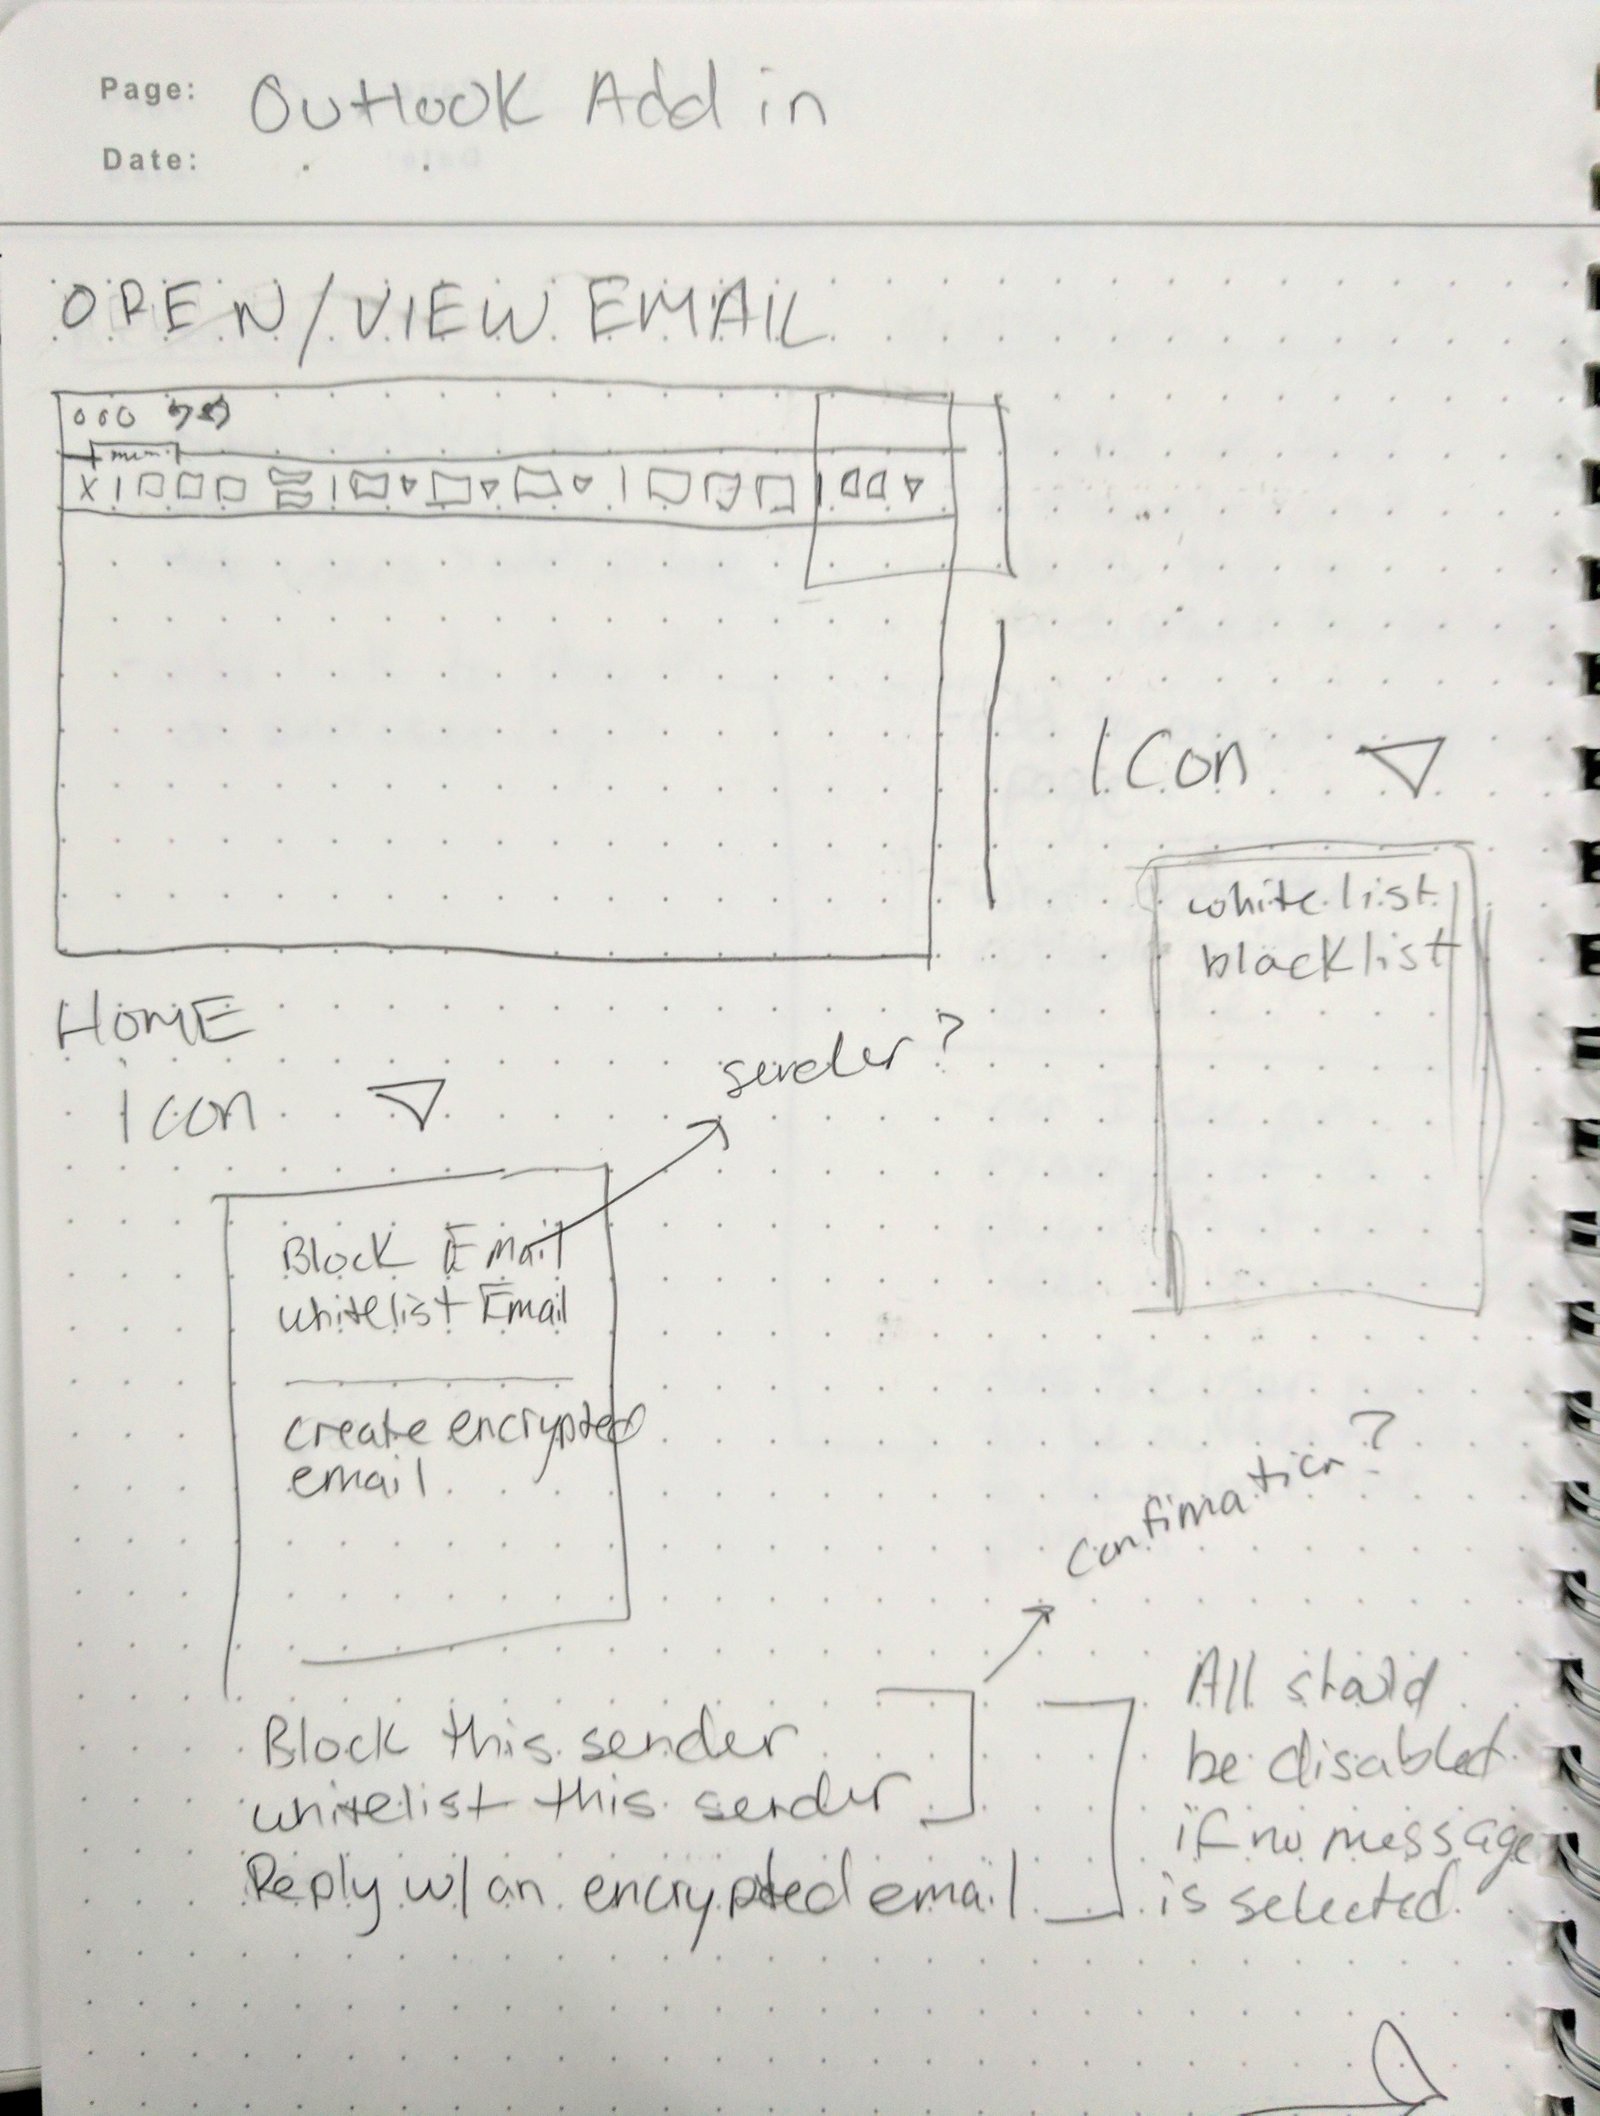 Page: Outlook Add in
Date:
OPEN/VIEW EMAIL
Icon
whitelist
blacklist
HOME
Icon
sender?
Block Email
whitelist Email
create encrypted
email
confimation?
Block this sender
whitelist this sender
Reply w/ an encrypted email
All should
be disabled
if no message
is selected.